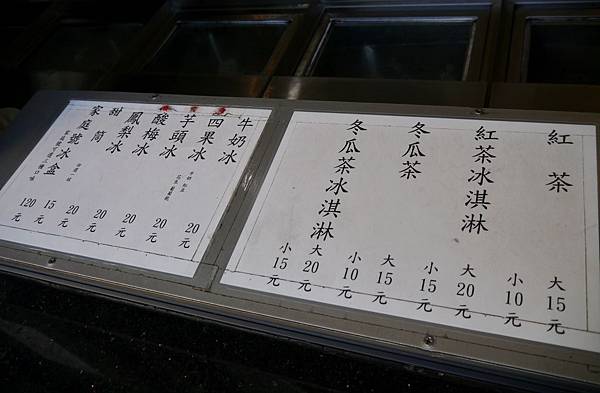 紅茶 大15元 小10元
紅茶冰淇淋 大20元 小15元
冬瓜茶 大15元 小10元
冬瓜茶冰淇淋 大20元 小15元
牛奶冰
四果冰 20元
芋頭冰 20元
酸梅冰 20元
鳳梨冰 20元
甜筒 15元
家庭號冰盒 120元